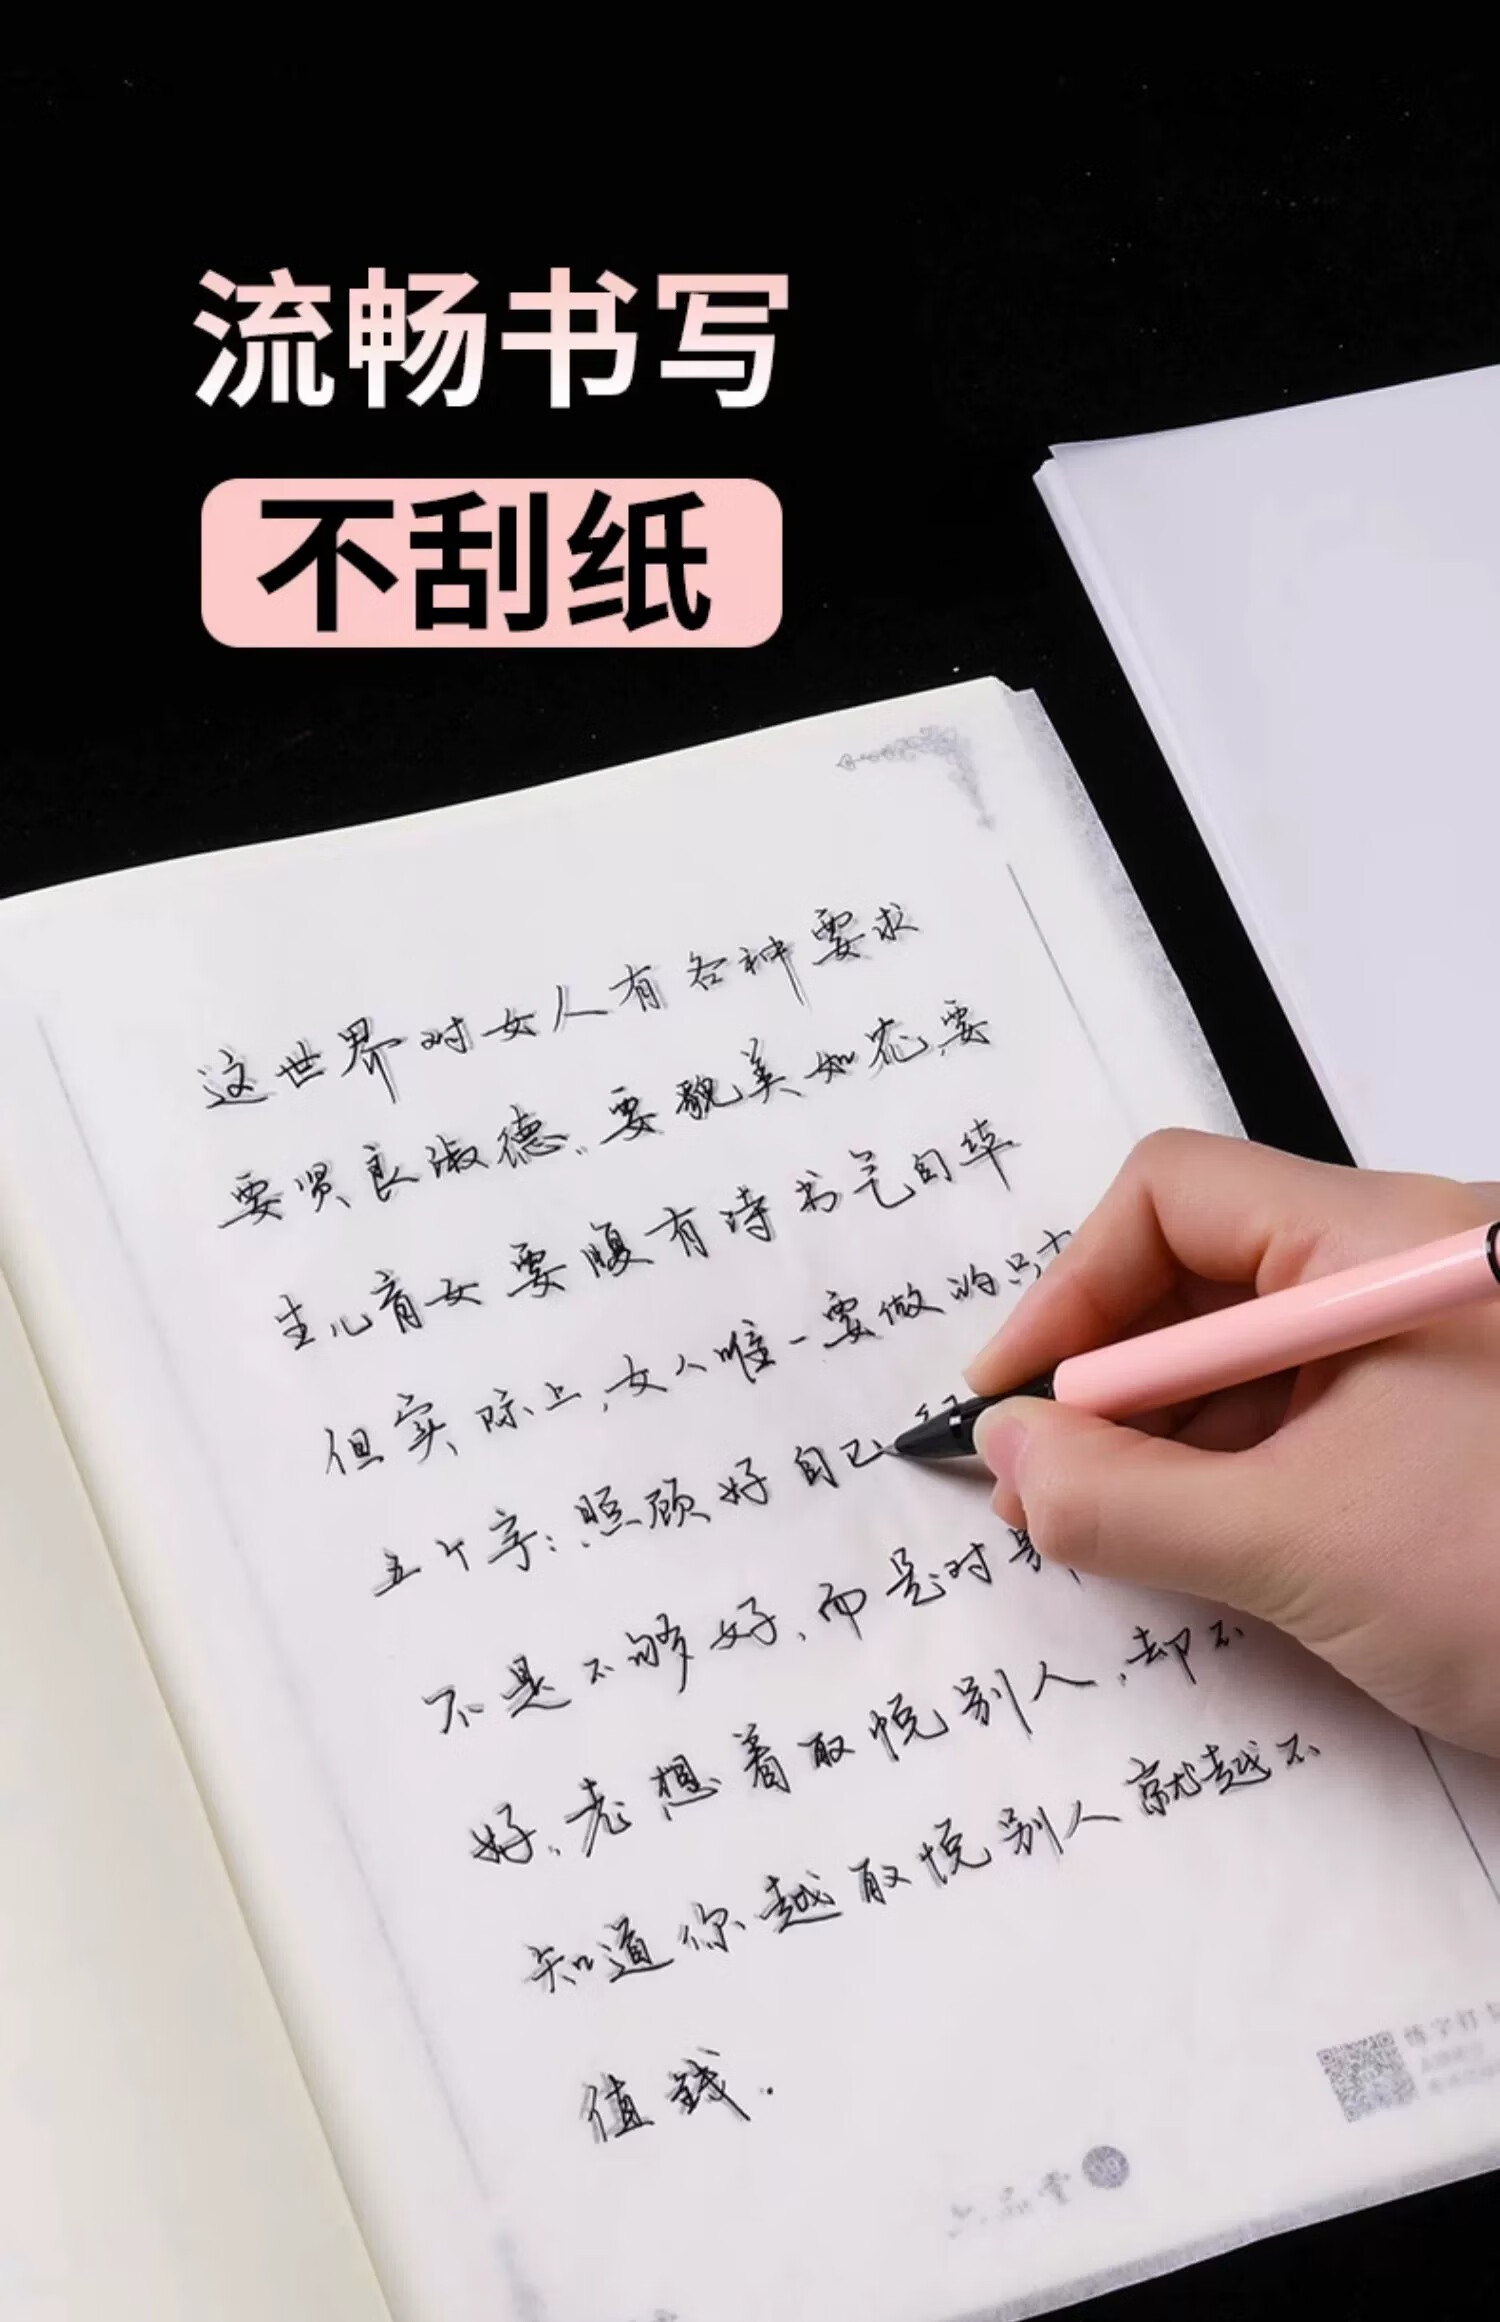 流畅书写
不刮纸
这世界对女人有各种要求
要贤良淑德、要貌美如花、要
生儿育女要腹有诗书气自华
但实际上,女人唯一要做的只
五个字:照顾好自己
不是不够好,而是对
好、老想着取悦别人,却不
知道你越取悦别人就越不
值钱.